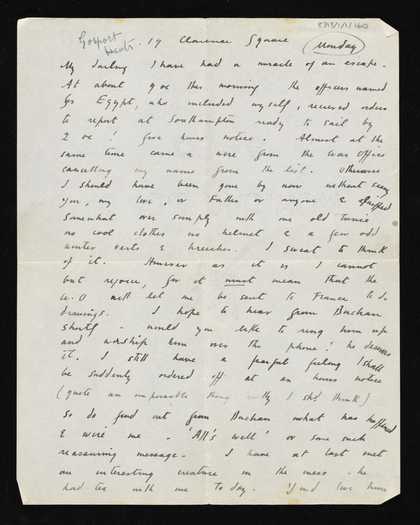 Gosport
Hants.
19 Clarence Square
Monday
My darling I have had a miracle of an escape.
At about 9 oc this morning the officers named
for Egypt, who included myself, received orders
to report at Southampton ready to sail by
2 oc! five hours notice. Almost at the
same time came a wire from the War Office
cancelling my name from the list. Otherwise
I should have been gone by now without seeing
you, my love, or Father or anyone &
somewhat over simply with one old tunic
no cool clothes no helmet & a few odd
winter vests & breeches. I sweat to think
of it. However as it is I cannot
but rejoice, for it must mean that the
W.O will let me be sent to France to do
drawings. I hope to hear from Buchan
shortly - would you like to ring him up
and worship him over the phone? he deserves
it. I still have a fearful feeling I shall
be suddenly ordered off at an hours notice
(quite an impossible thing really I shd think)
So do find out from Buchan what has happened
& wire me - 'All's well' or some such
reassuring message. I have at last met
an interesting creature in the mess - he
had tea with me to day.